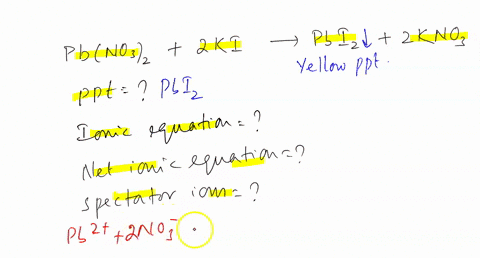 Pb(NO₃)₂ + 2KI → PbI₂↓ + 2KNO₃
Yellow ppt.
ppt = ? PbI₂
Ionic equation = ?
Net ionic equation = ?
spectator ion = ?
Pb²⁺ + 2NO₃⁻